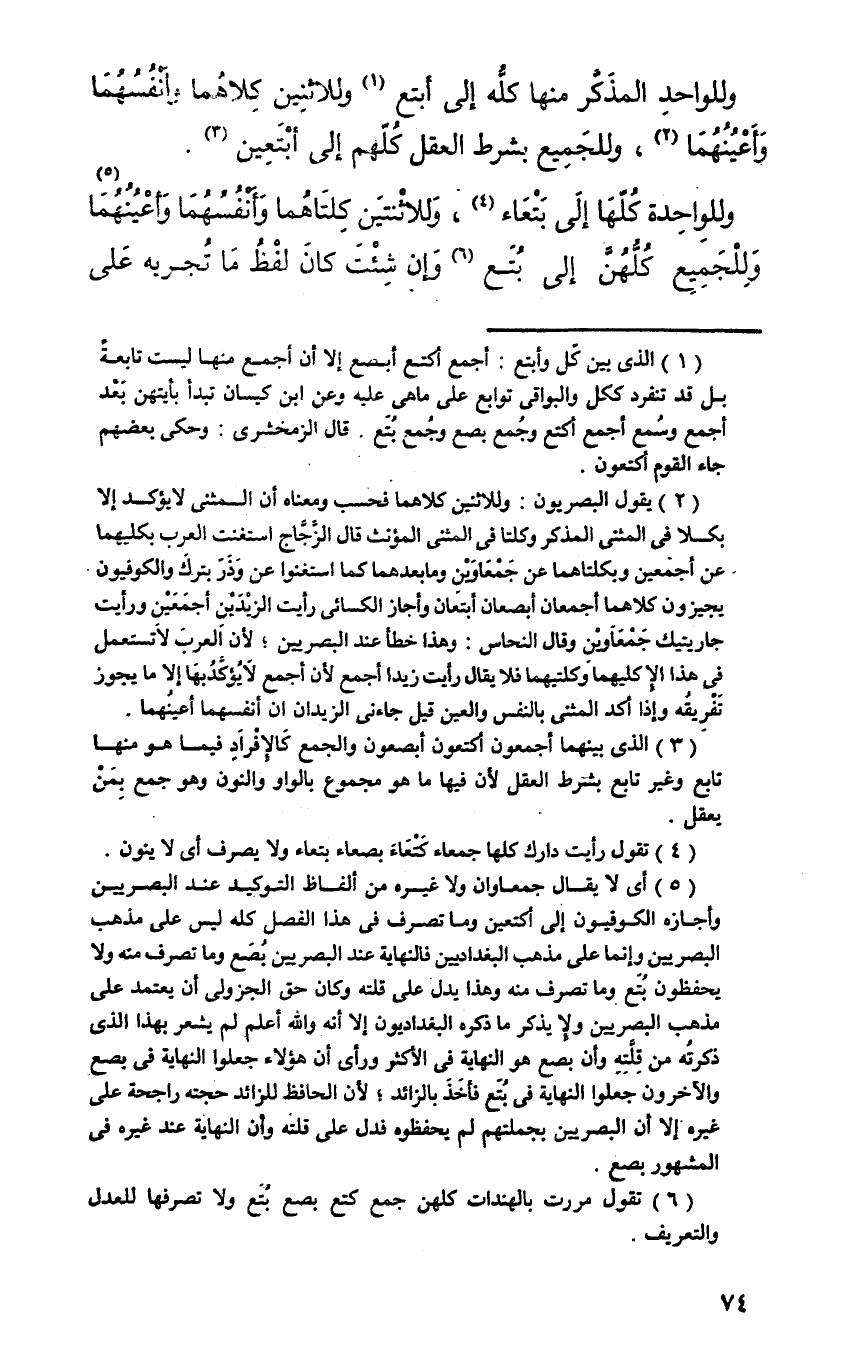 وللواحدِ المذَكَّر منها كلُّه إلى أبتع (١) وللاثنِين كِلاهُما وأنْفُسُهُمَا
وَأَعْيُنُهُمَا (٢) ، وللجَمِيع بشرط العقل كُلّهم إلى أبْتَعِين (٣) .
وللواحِدة كُلّهَا إلَى بَتْعَاء (٤) ، وَللاثْنتيَن كِلتَاهُما وَأَنْفُسُهُمَا وَأعْيُنُهُمَا (٥)
وَلِلْجَمِيعِ كُلُّهُنَّ إلى بُتَـع (٦) وَإن شِئْتَ كانَ لفْظُ مَا تُجـربه عَلى
( ١ ) الذى بين كَل وأبتع : أجمع أكتـع أبـصع إلا أن أجمـع منهـا ليست تابعةً
بـل قد تنفرد ككل والبواقى توابع على ماهى عليه وعن ابن كيسان تبدأ بأيتهن بَعْد
أجمع وسُمع أجمع أكتع وجُمع بصع وجُمع بُتَع . قال الزمخشرى : وحكى بعضهم
جاء القوم أكتعون .
( ٢ ) يقول البصريون : وللاثنين كلاهما فحسب ومعناه أن الـمثنى لايؤكـد إلا
بكـلا فى المثنى المذكر وكلتا فى المثنى المؤنث قال الزَّجَّاج استغنت العرب بكليهما
عن أجمَعين وبكلتاهما عن جَمْعَاوَيْنِ ومابعدهما كما استغنوا عن وَذَرَ بتركَ والكوفيون
يجيزون كلاهما أجمعان أبصعان أبتَعان وأجاز الكسائى رأيت الزيْدَيْن أجمَعَيْن ورأيت
جاريتيك جَمْعَاوِيْن وقال النحاس : وهذا خطأ عند البصريين ؛ لأن العربَ لاتستعمل
فى هذا الإ كليهما وَكلتيهما فلا يقال رأيت زيدا أجمع لأن أجمع لاَيُؤكَّدُبهَا إلا ما يجوز
تَفْرِيقُه وإذا أكد المثنى بالنفس والعين قيل جاءنى الزيدان ان أنفسهما أعينُهما .
( ٣ ) الذى بينهما أجمعون أكتعون أبصعون والجمع كَالإفْرَادِ فيمـا هـو منهـا
تابع وغير تابع بشرط العقل لأن فيها ما هو مجموع بالواو والنون وهو جمع بِمَنْ
يعقل .
( ٤ ) تقول رأيت دارك كلها جمعاء كَتْعَاءَ بصعاء بتعاء ولا يصرف أى لا ينون .
( ٥ ) أى لا يقـال جمعـاوان ولا غيـره من ألفـاظ التوكيـد عنـد البصـريـن
وأجـازه الكـوفيـون إلى أكتعين ومـا تصـرف فى هذا الفصل كله ليس على مذهب
البصريين وإنما على مذهب البغداديين فالنهاية عند البصريين بُصَع وما تصرف منه ولا
يحفظون بُتَع وما تصرف منه وهذا يدل على قلته وكان حق الجزولى أن يعتمد على
مذهب البصريين ولا يذكر ما ذكره البغداديون إلا أنه والله أعلم لم يشعر بهذا الذى
ذكرتُه من قِلَّتِه وأن بصع هو النهاية فى الأكثر ورأى أن هؤلاء جعلوا النهاية فى بصع
والآخرون جعلوا النهاية فى بُتَع فأخَذَ بالزائد ؛ لأن الحافظ للزائد حجته راجحة على
غيره إلا أن البصريين بجملتهم لم يحفظوه فدل على قلته وأن النهاية عند غيره فى
المشهور بصع .
( ٦ ) تقول مررت بالهندات كلهن جمع كتع بصع بُتَع ولا تصرفها للعدل
والتعريف .
٧٤